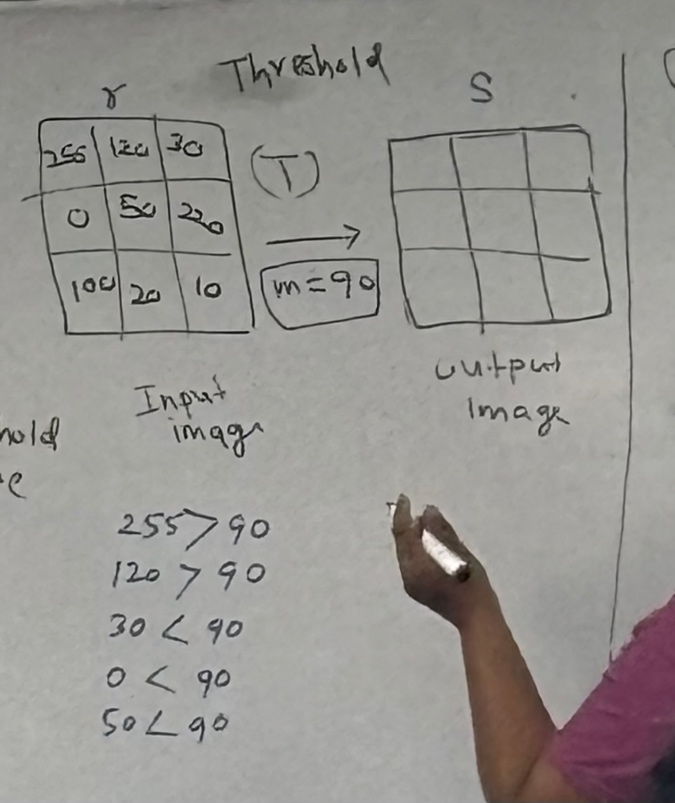 Threshold
r
S
255 120 30
0 50 220
100 20 10
(T)
m = 90
Input
image
output
Image
hold
e
255 > 90
120 > 90
30 < 90
0 < 90
50 < 90